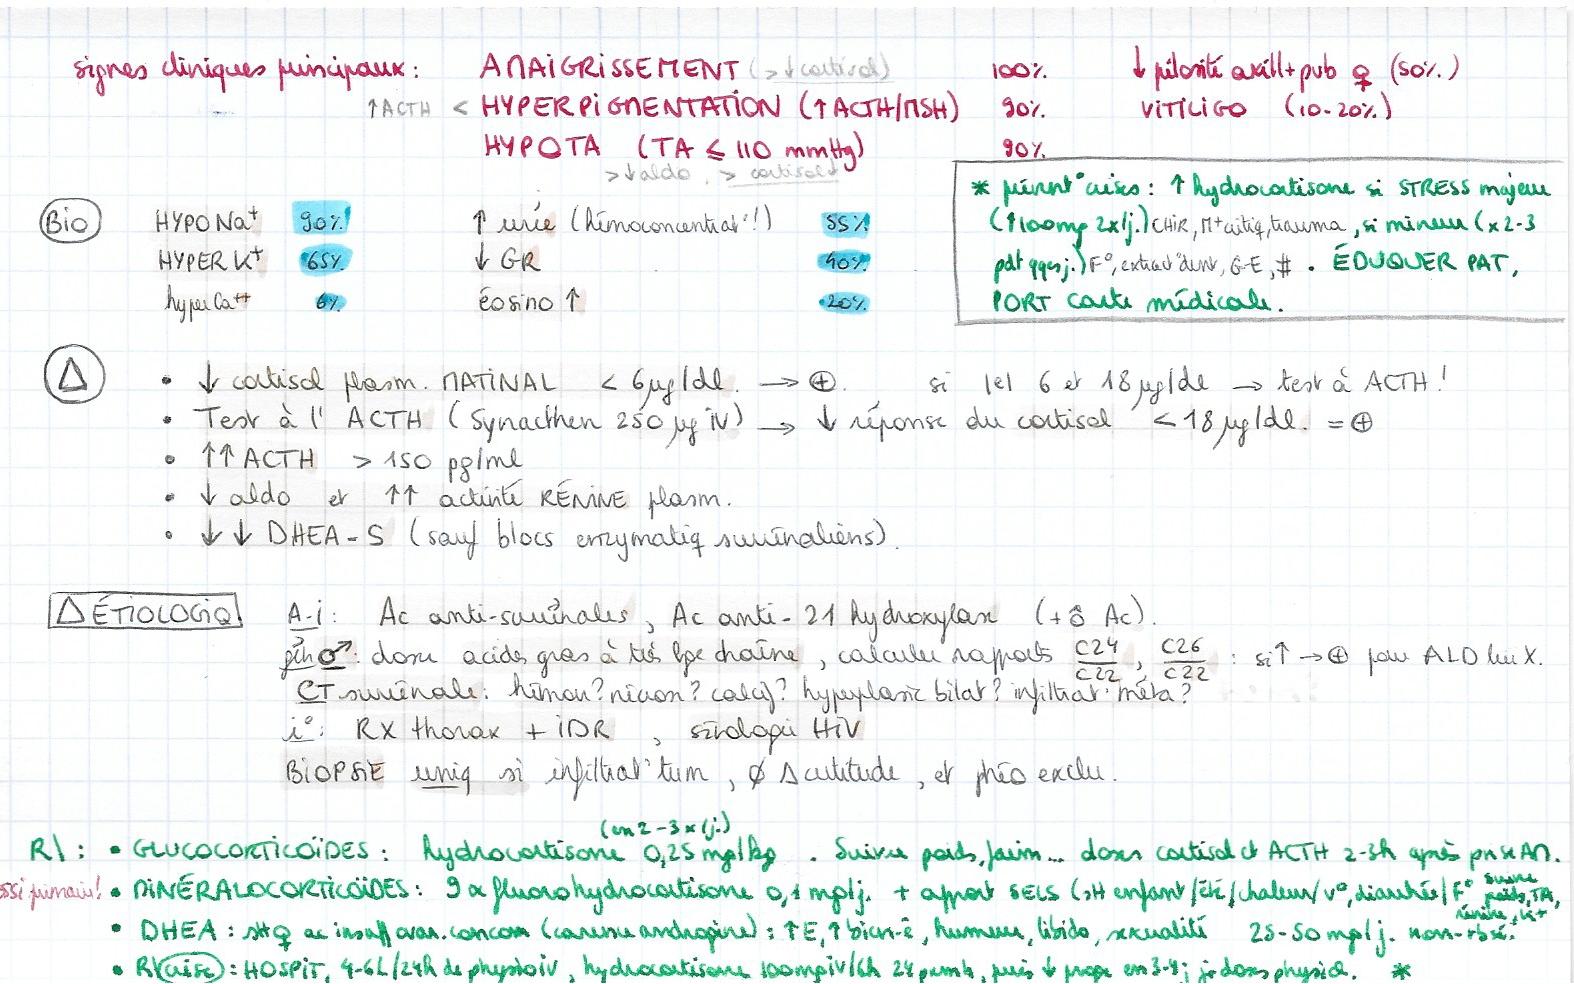 signes cliniques principaux : AMAIGRISSEMENT (>↓cortisol) 100% ↓ pilosité axill+pub ♀ (50%)
↑ACTH < HYPERPIGMENTATION (↑ACTH/MSH) 90% VITILIGO (10-20%)
HYPOTA (TA ≤ 110 mmHg) 90%
>↓aldo, > cortisol↓
* prévent° crises : ↑ hydrocortisone si STRESS majeur
(↑100mg 2x/j.) CHIR, M+critiq, trauma, si mineur (x2-3
pdt qqes j.) F°, extract° dent, G-E, #. ÉDUQUER PAT,
PORT carte médicale.
Bio HYPO Na+ 90%! ↑ urée (hémoconcentrat°!) 55%
HYPER K+ 65% ↓ GR 40%
hyper Ca++ 6% éosino ↑ 20%
Δ • ↓ cortisol plasm. MATINAL < 6µg/dl. → ⊕. si [e] 6 et 18 µg/dl → test à ACTH!
• Test à l'ACTH (Synacthen 250 µg iv) → ↓ réponse du cortisol < 18 µg/dl. = ⊕
• ↑↑ ACTH > 150 pg/ml
• ↓ aldo et ↑↑ activité RÉNINE plasm.
• ↓↓ DHEA-S (sauf blocs enzymatiq surrénaliens).
Δ ÉTIOLOGIQ A-i : Ac anti-surrénales, Ac anti-21 hydroxylase (+ô Ac).
gén ♂ : doser acides gras à très lgue chaîne, calculer rapports C24/C22, C26/C22 : si ↑ → ⊕ pour ALD liée X.
CT surrénale : hémorr? nécros? calcif? hyperplasie bilat? infiltrat° méta?
i° : RX thorax + IDR, sérologie HIV
BIOPSIE uniq si infiltrat° tum, ø Δ certitude, et phéo exclu.
(en 2-3x/j.)
R\ : • GLUCOCORTICOÏDES : hydrocortisone 0,25 mg/kg. Suivre poids, faim... doses cortisol et ACTH 2-3h après prise AM.
ssi primaire! • MINÉRALOCORTICOÏDES : 9α fluorohydrocortisone 0,1 mg/j. + apport SELS (sH enfant/été/chaleur/v°, diarrhée/F° suivre poids, TA, rénine, K+
• DHEA : sH ♀ ac insuff ovar. concom (carence androgène) : ↑E, ↑bien-ê, humeur, libido, sexualité 25-50 mg/j. non-rbsé.
• R\ crise : HOSPIT, 4-6L/24h de physio iv, hydrocortisone 100mg iv/6h 24 prem h, puis ↓ progr en 3-4j jq doses physiol. *